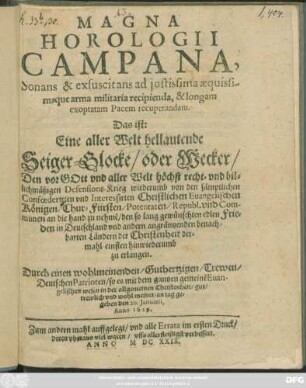 MAGNA
HOROLOGII
CAMPANA,
Sonans & exsuscitans ad justissima æquissi-
maque arma militaria recipienda, & longam
exoptatam Pacem recuperandam.
Das ist:
Eine aller Welt hellautende
Seiger-Glocke/ oder Wecker/
Den vor GOtt vnd aller Welt höchst recht- vnd bil-
lichmässigen Defensions-Krieg wiederumb von den sämptlichen
Confœderirten vnd Interessirten Christlichen Euangelischen
Königen/ Chur-Fürsten/ Potentaten/ Republ. vnd Com-
munen an die hand zu nehmen/ den so lang gewünschten edlen Frie-
den in Deutschland vnd andern angräntzenden benach-
barten Ländern der Christenheit der-
mahl einsten hinwiederumb
zu erlangen.
Durch einen wohlmeinenden/ Guthertzigen/ Trewen/
Deutschen Patrioten/ so es mit dem gantzen gemeinen Euan-
gelischen wesen in der allgemeinen Christenheit/ gut/
trewlich vnd wohl meinet/ an tag ge-
geben den 20. Januarij,
Anno 1629.
Zum andern mahl auffgelegt/ vnd alle Errata im ersten Druck/
deren vberaus viel waren/ vffs allerfleissigst verbessert.
ANNO M DC XXIX.